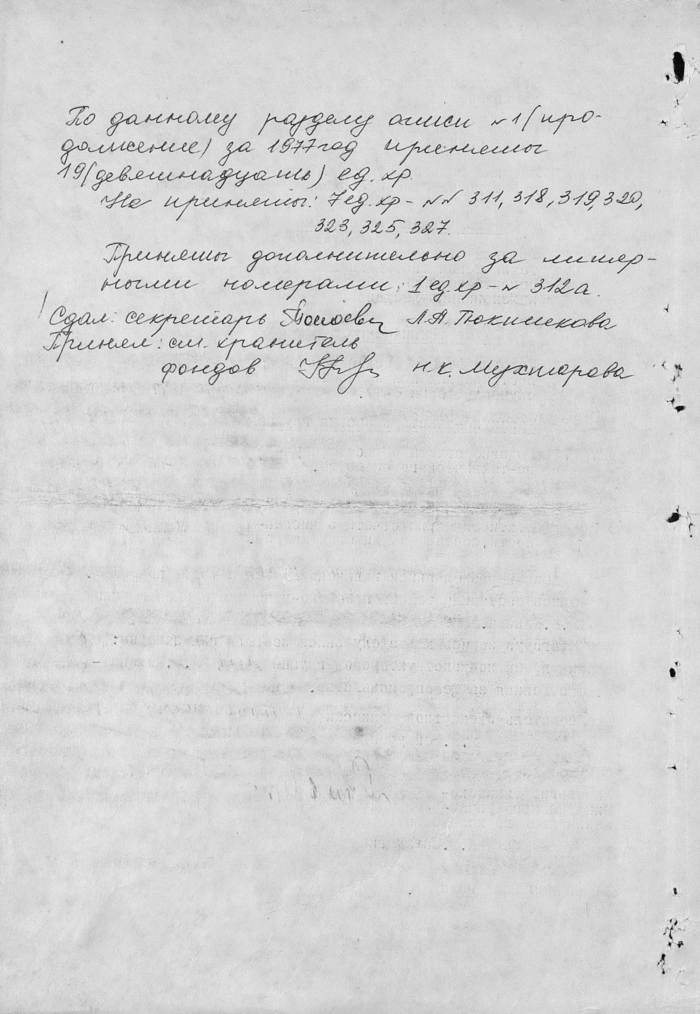 По данному разделу описи №1 (про-
должение) за 1977 год приняты
19 (девятнадцать) ед. хр.
Не приняты: 7 ед. хр - №№ 311, 318, 319, 320,
323, 325, 327.
Приняты дополнительно за литер-
ными номерами: 1 ед хр - № 312а.
Сдал: секретарь Л.А.
Принял: ст. хранитель
фондов Н.К. Мухтарова